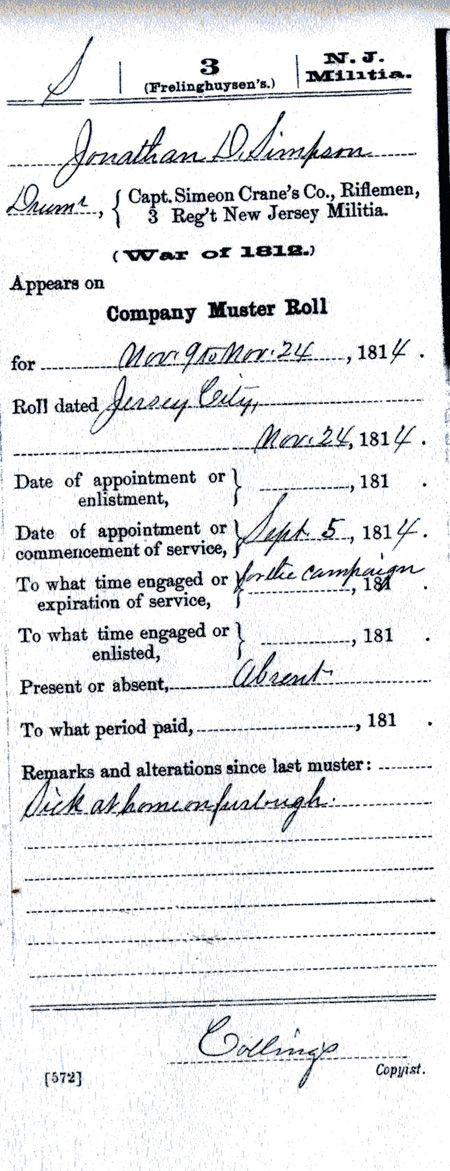 S | 3 | N. J.
(Frelinghuysen's.) | Militia.
Jonathan D. Simpson
Drumr, { Capt. Simeon Crane's Co., Riflemen,
3 Reg't New Jersey Militia.
(War of 1812.)
Appears on
Company Muster Roll
for Nov. 9 to Nov. 24, 1814.
Roll dated Jersey City,
Nov. 24, 1814.
Date of appointment or
enlistment, } , 181 .
Date of appointment or
commencement of service, } Sept. 5, 1814.
To what time engaged or } for the campaign
expiration of service, , 181
To what time engaged or
enlisted, } , 181 .
Present or absent, Absent
To what period paid, , 181 .
Remarks and alterations since last muster:
Sick at home on furlough.
Collings
[572] Copyist.